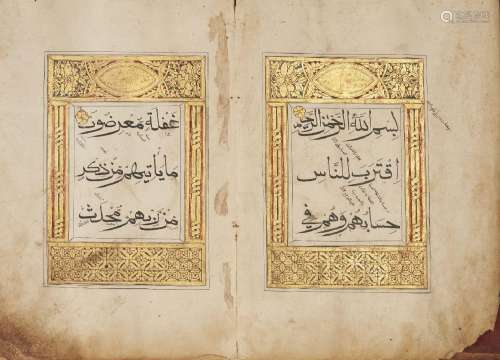 بسم الله الرحمن الرحيم
اقترب للناس
حسابهم وهم في
غفلة معرضون
ما يأتيهم من ذكر
من ربهم محدث